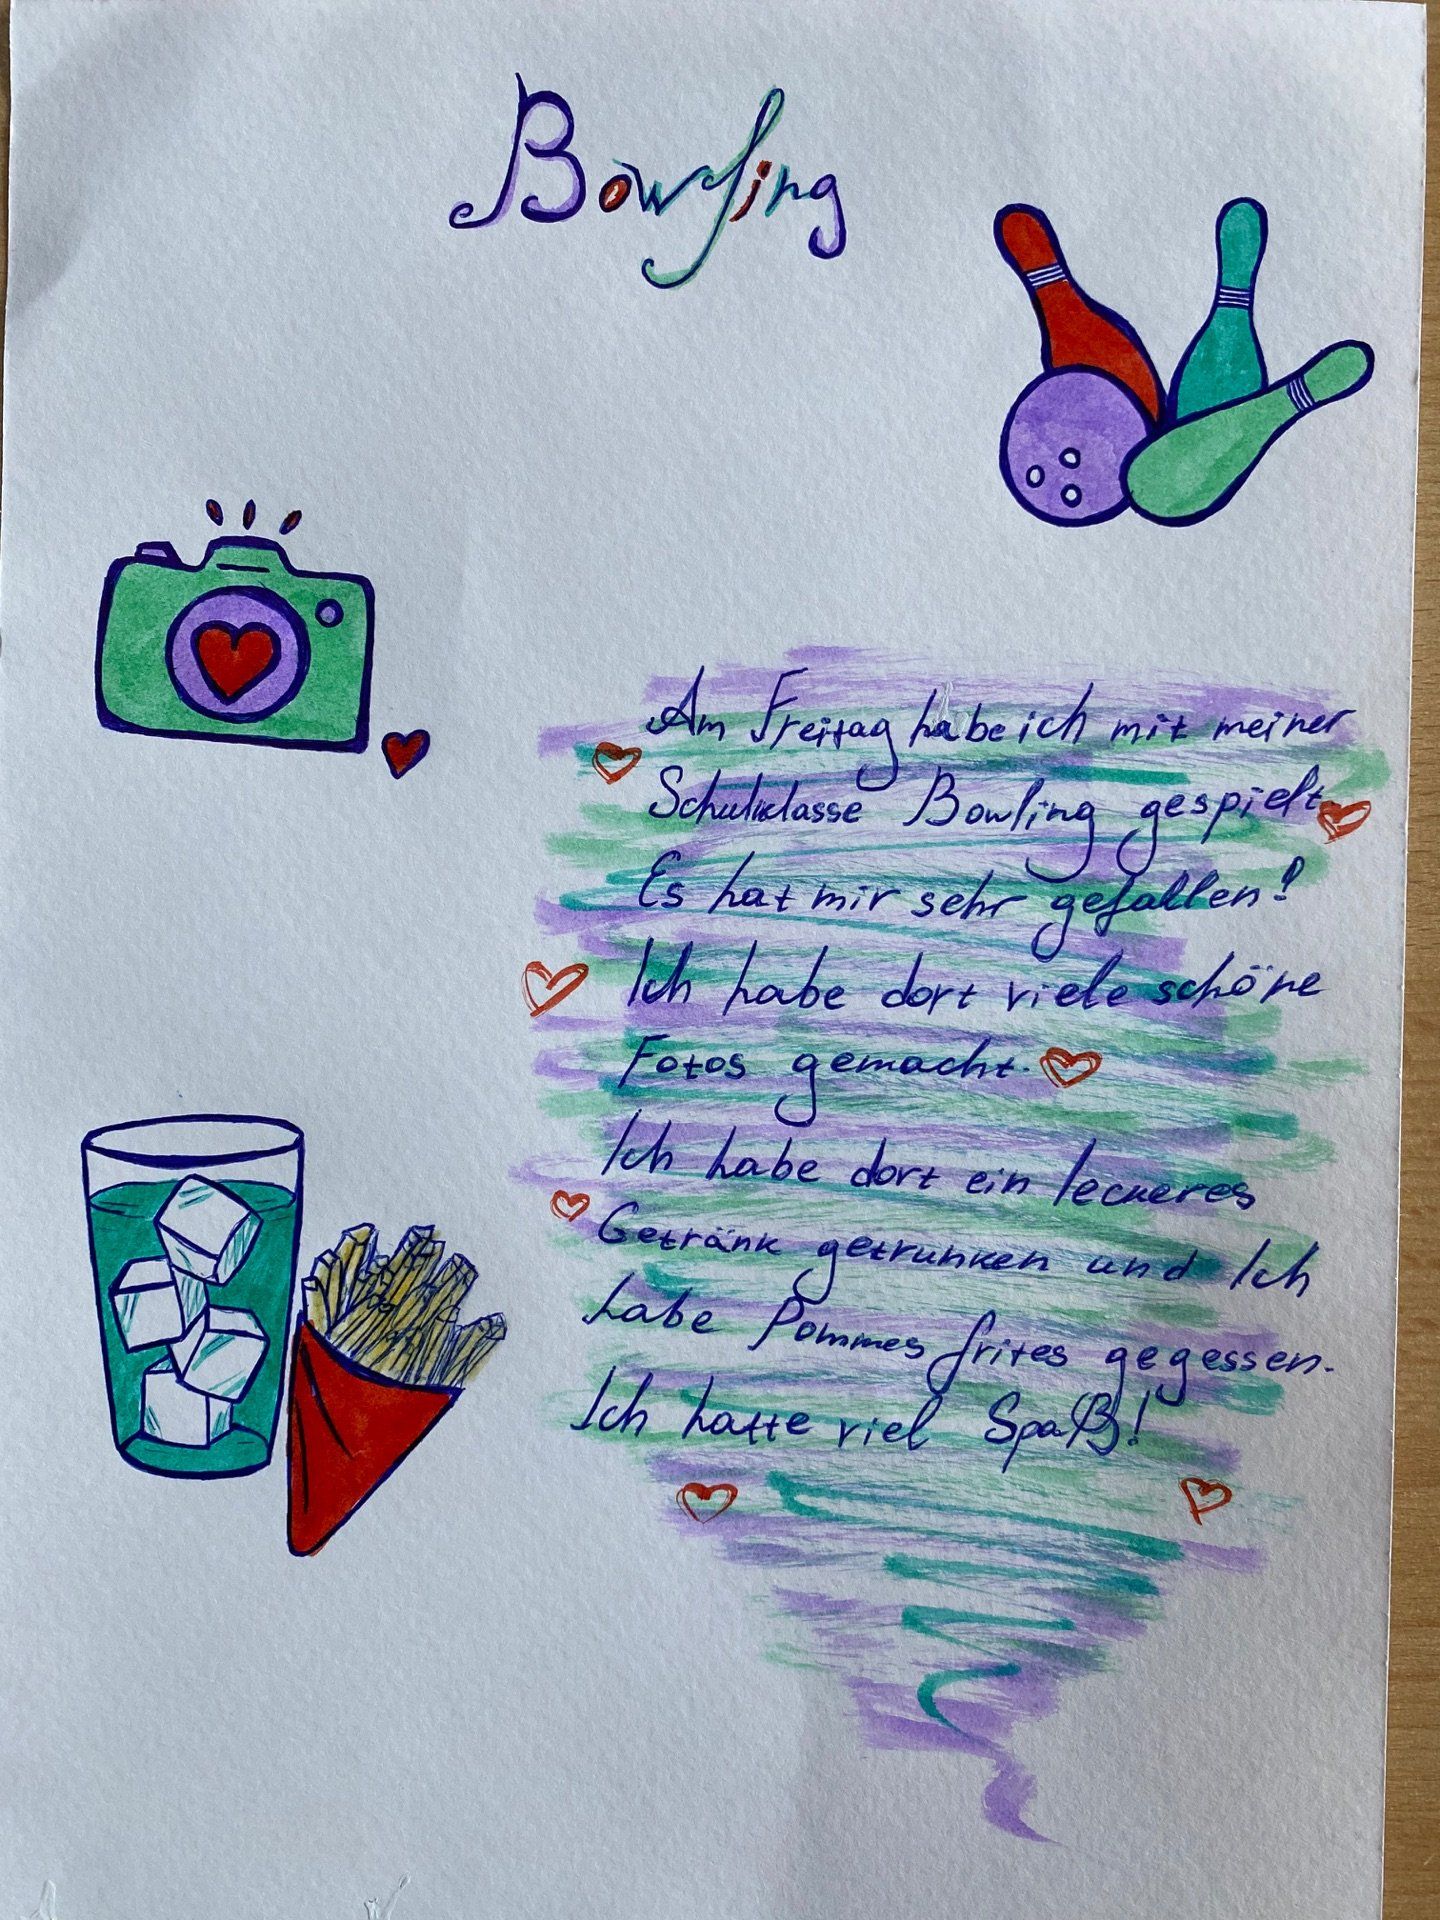 Bowling
Am Freitag habe ich mit meiner
Schulklasse Bowling gespielt.
Es hat mir sehr gefallen!
Ich habe dort viele schöne
Fotos gemacht.
Ich habe dort ein leckeres
Getränk getrunken und Ich
habe Pommes frites gegessen.
Ich hatte viel Spaß!